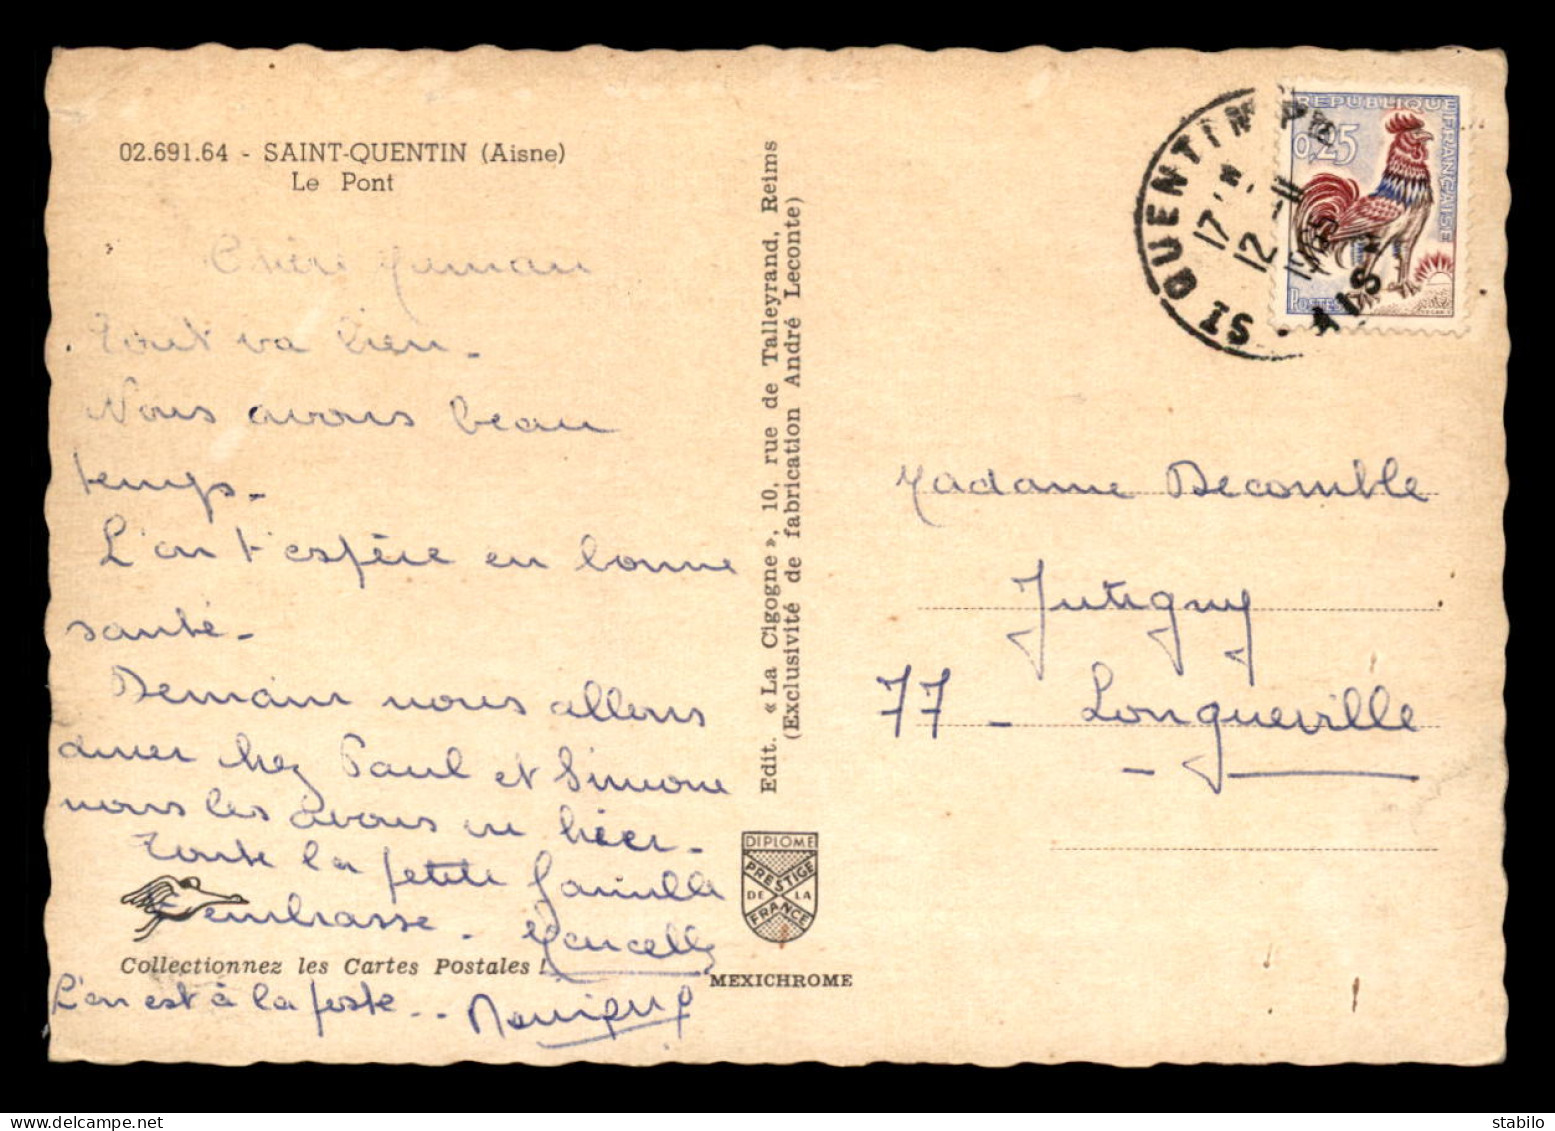 02.691.64 - SAINT-QUENTIN (Aisne)
Le Pont
Chère Maman
Tout va bien -
Nous avons beau
temps -
L'on t'espère en bonne
santé -
Demain nous allons
diner chez Paul et Simone
nous les avons vu hier -
Toute la petite famille
t'embrasse - Marcelle
Collectionnez les Cartes Postales !
L'on est à la poste -- Monique
Edit. « La Cigogne », 10, rue de Talleyrand, Reims
(Exclusivité de fabrication André Leconte)
DIPLOME
PRESTIGE
DE LA
FRANCE
MEXICHROME
ST QUENTIN
17
12 - 11
1965
AISNE
REPUBLIQUE FRANÇAISE
0,25
POSTES
Madame Decomble
Jutigny
77 - Longueville
stabilo_